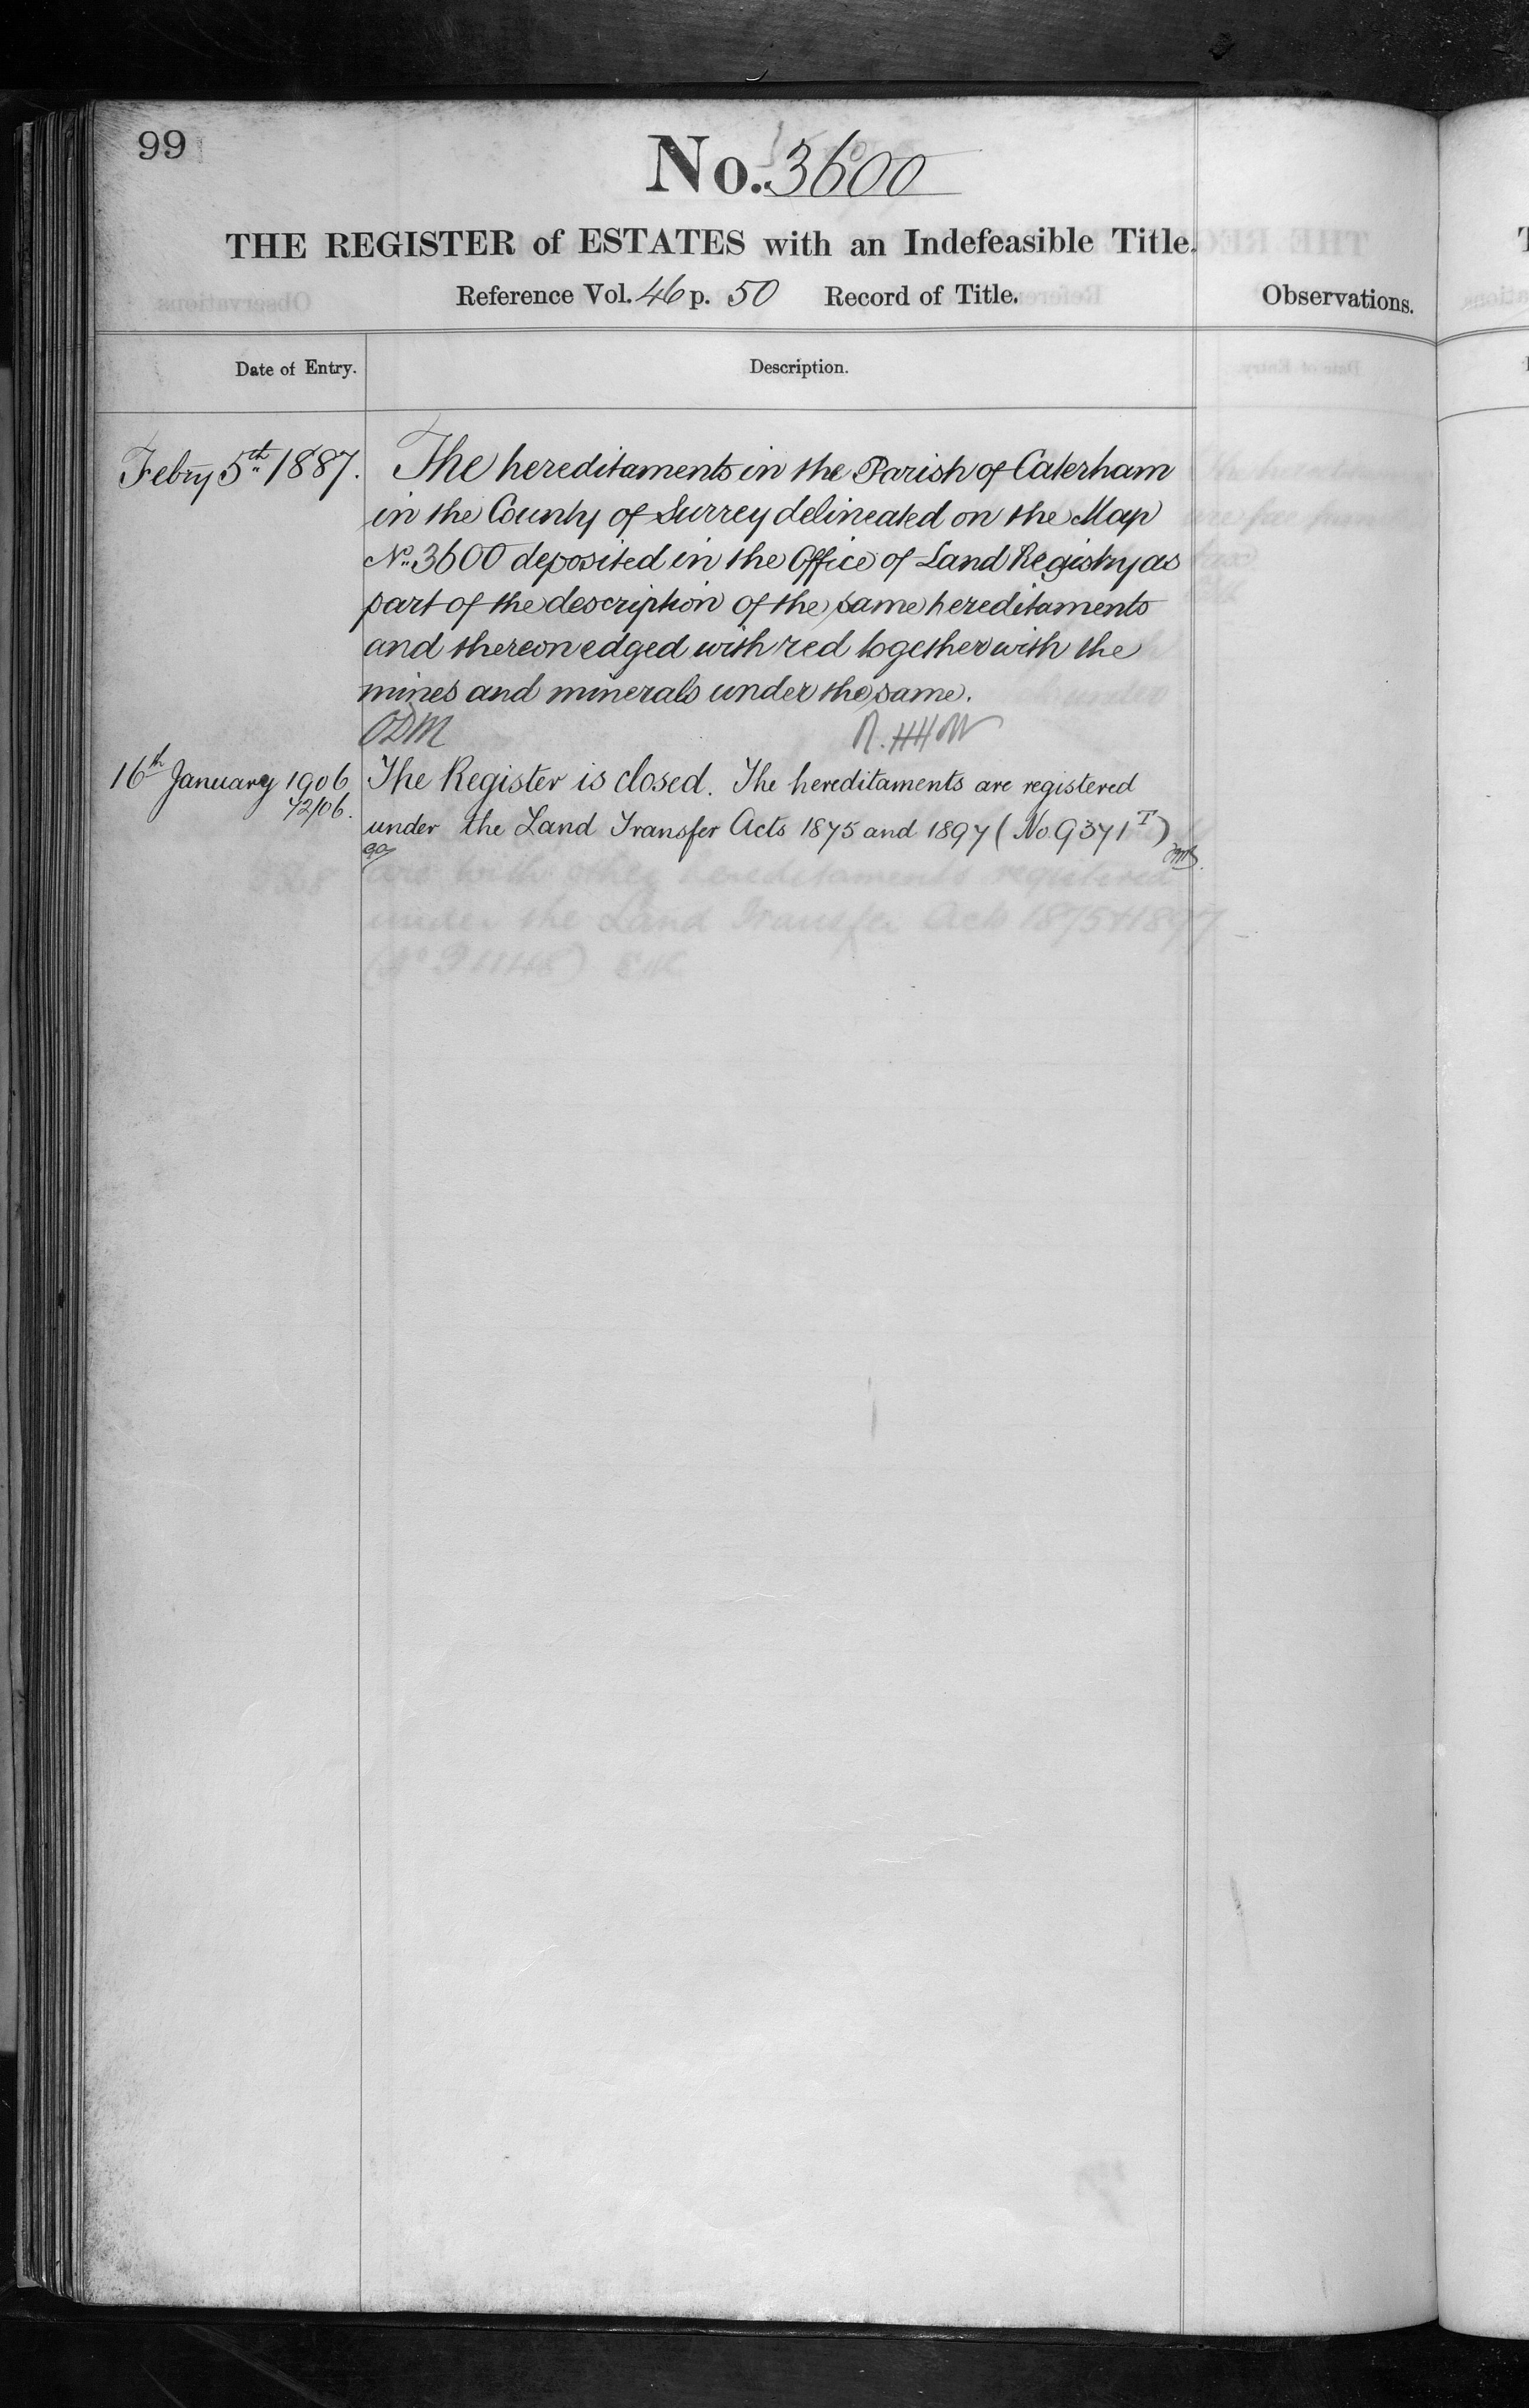 99
No. 3600
THE REGISTER of ESTATES with an Indefeasible Title.
Reference Vol. 46 p. 50 Record of Title.
Observations.
Date of Entry.
Description.
Febry 5th 1887.
The hereditaments in the Parish of Caterham
in the County of Surrey delineated on the Map
No. 3600 deposited in the Office of Land Registry as
part of the description of the same hereditaments
and thereon edged with red together with the
mines and minerals under the same.
ODM
16th January 1906
42/06.
The Register is closed. The hereditaments are registered
under the Land Transfer Acts 1875 and 1897 (No 9371 T)